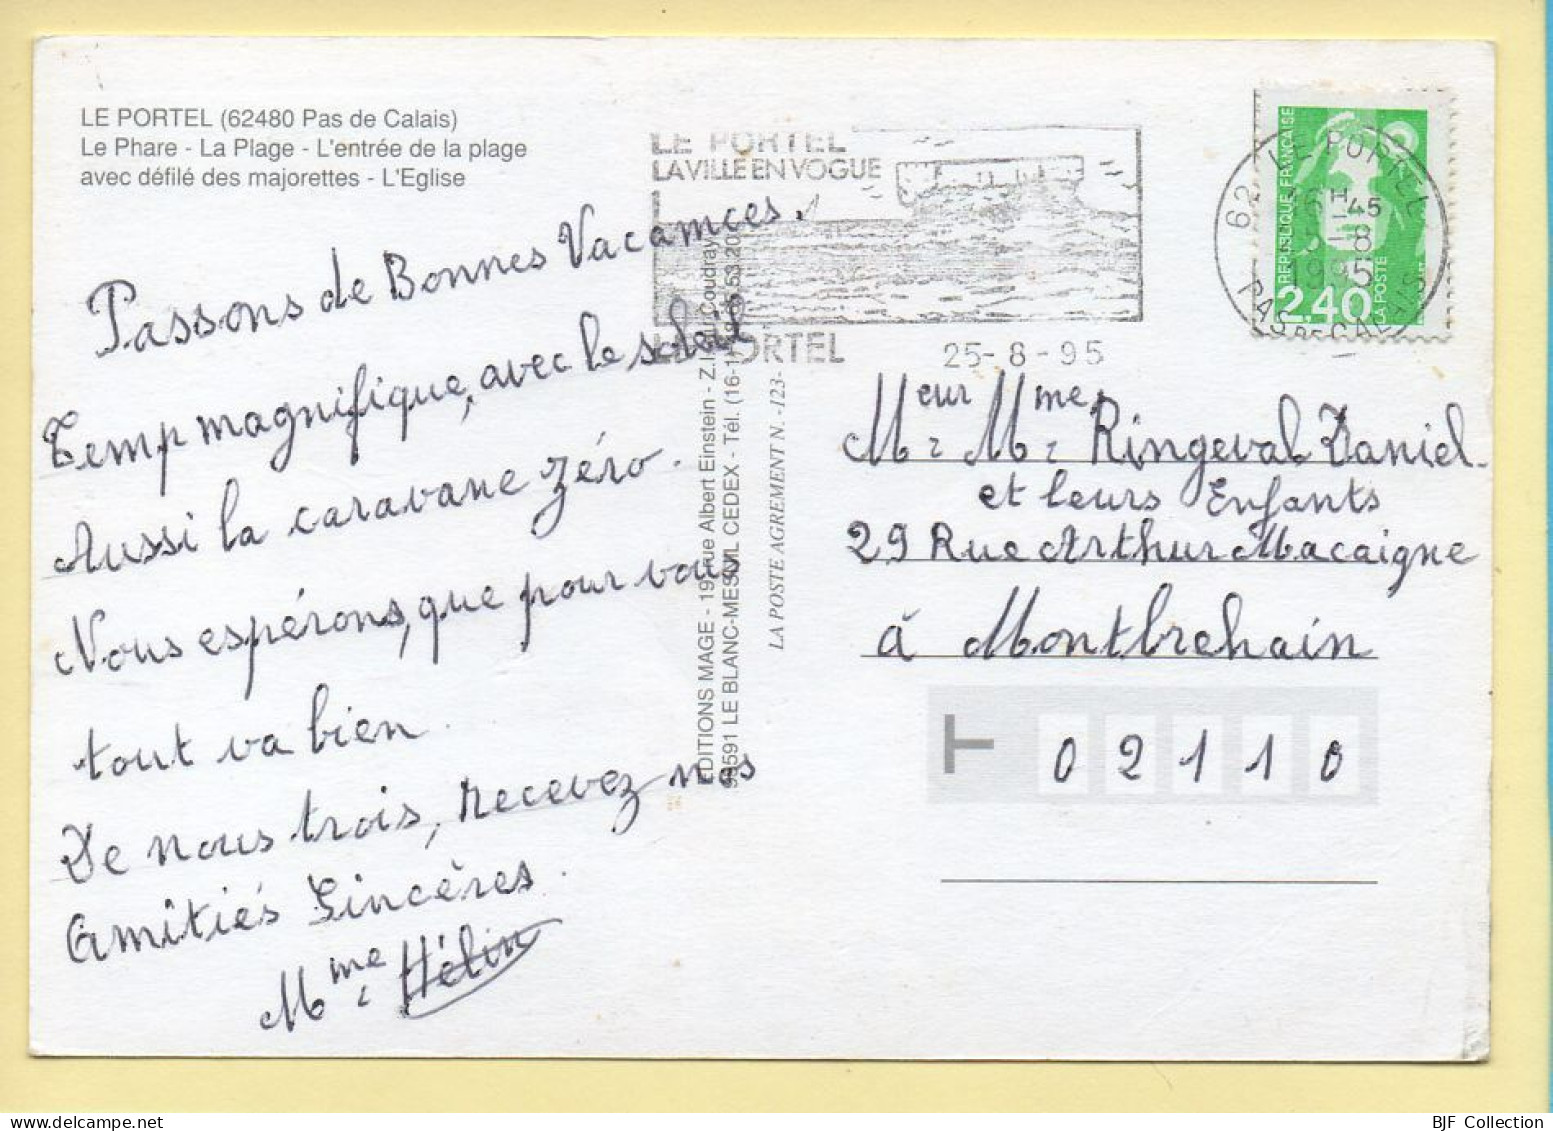 LE PORTEL (62480 Pas de Calais)
Le Phare - La Plage - L'entrée de la plage
avec défilé des majorettes - L'Eglise
Passons de Bonnes Vacances.
Temp magnifique, avec le soleil
Aussi la caravane zéro.
Nous espérons, que pour vous
tout va bien.
De nous trois, recevez nos
Amitiés Sincères.
Mme Hélin
EDITIONS MAGE - 19, rue Albert Einstein - Z.I. Coudray
93591 LE BLANC-MESNIL CEDEX - Tél. (16-1)
LA POSTE AGREMENT N. -123-
LE PORTEL
LA VILLE EN VOGUE
LE PORTEL
25-8-95
62 LE PORTEL
16H45
25-8
1995
PAS DE CALAIS
REPUBLIQUE FRANÇAISE
2,40
LA POSTE
Meur Mme
M: M: Ringeval Daniel.
et leurs Enfants
29 Rue Arthur Macaigne
à Montbrehain
T 02110
BJF Collection